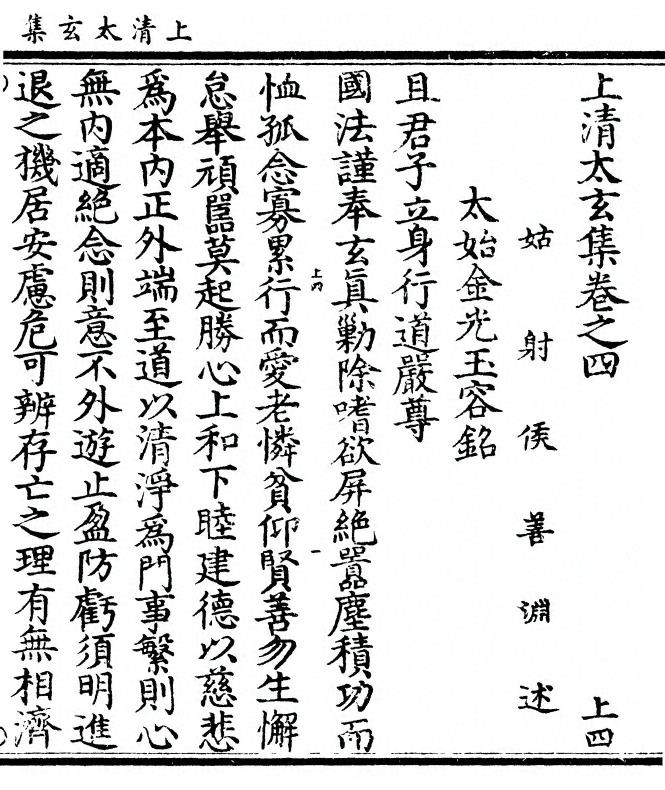 上清太玄集
上清太玄集卷之四 上四
姑射侯善淵述
太始金光玉容銘
且君子立身行道嚴尊
國法謹奉玄真勦除嗜欲屏絕嚻塵積功而
恤孤念寡累行而愛老憐貧仰賢善勿生懈
上四 一
怠舉頑嚚莫起勝心上和下睦建德以慈悲
為本內正外端至道以清淨為門事繁則心
無內適絕念則意不外遊止盈防虧須明進
退之機居安慮危可辨存亡之理有無相濟